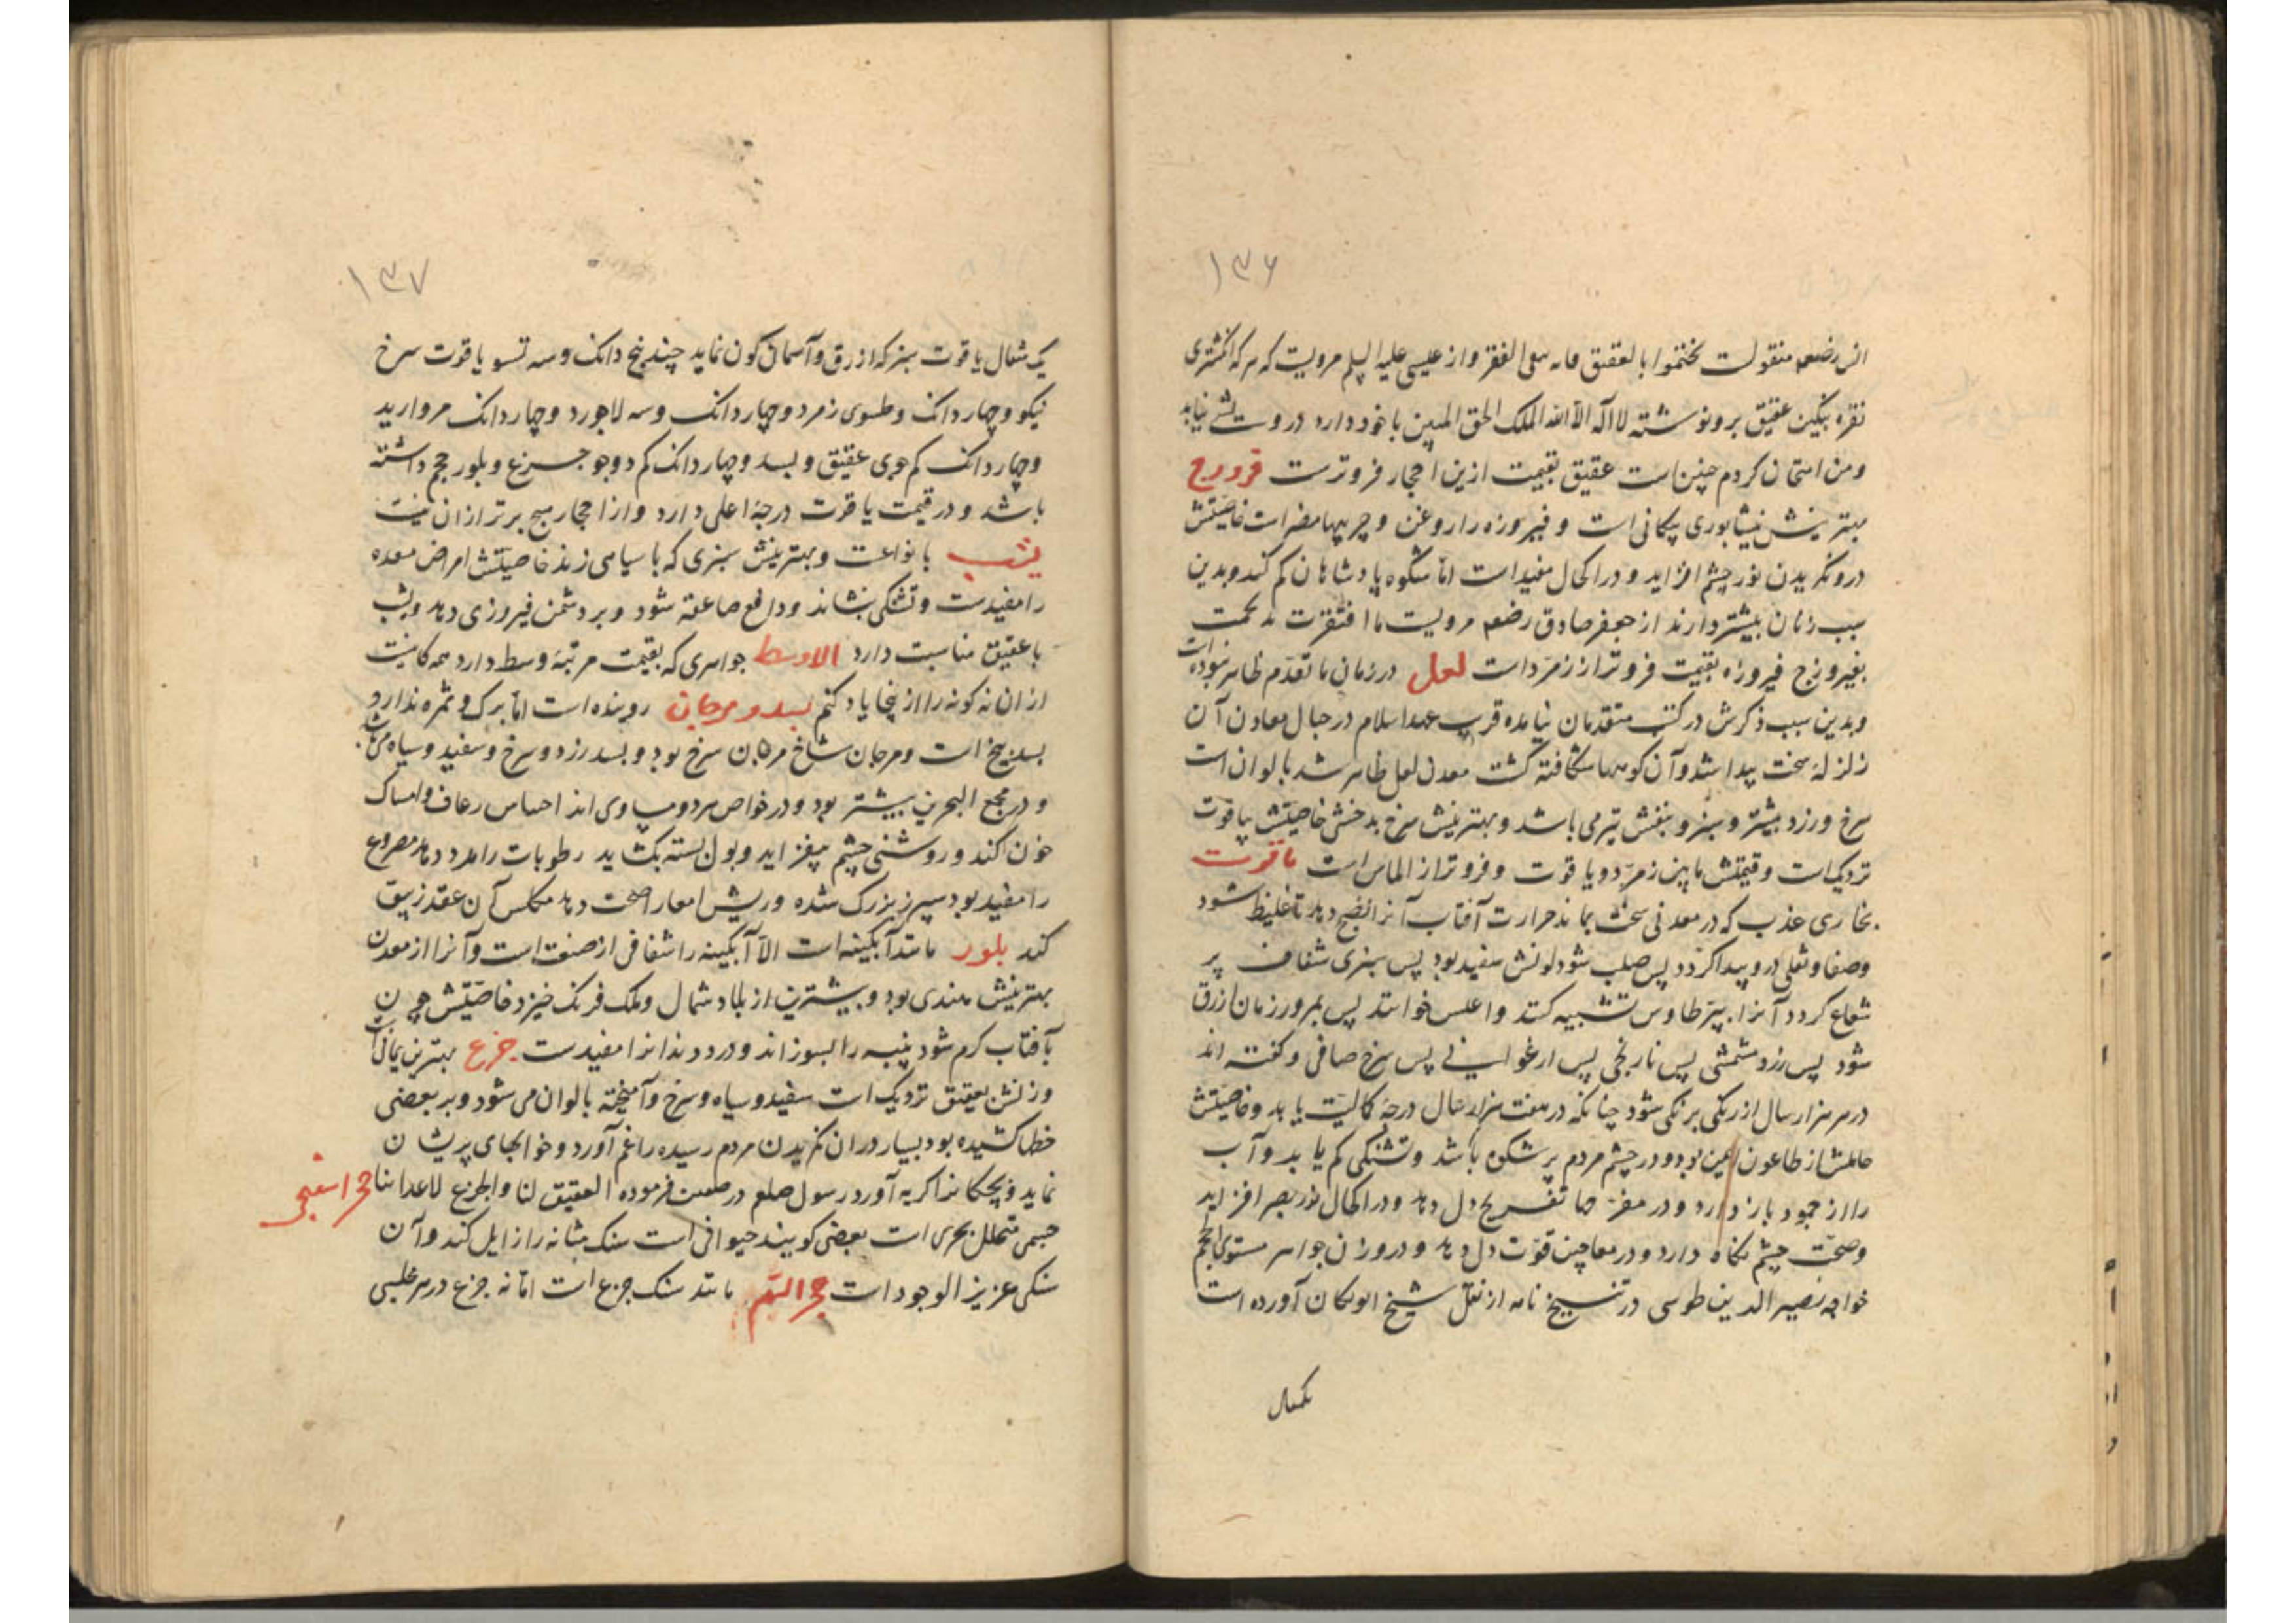 ۱۳۶
انس رضعه منقولست تختموا بالعقیق فانه ینفی الفقر و از عیسی علیه السلم مرویست که هرکه انکشتری
نقره بنکین عقیق برو نوشته لا اله الا الله الملک الحق المبین با خود دارد درویشی نیابد
و من امتحان کردم چنین است عقیق بقیمت ازین احجار فروترست فیروزج
بهترینش نیشابوری پیکانی است و فیروزه را روغن و چربیها مضر است خاصیتش
درو نکریدن نور چشم افزاید و در اکحال مفید است اما شکوه پادشاهان کم کند و بدین
سبب زنان بیشتر دارند از جعفر صادق رضعه مرویست ما افتقرت ید تختمت
بفیروزج فیروزه بقیمت فروتر از زمرد است لعل در زمان ما تقدم ظاهر نبوده است
و بدین سبب ذکرش در کتب متقدمان نیامده قرب عهد اسلام در جبال معادن آن
زلزله سخت پیدا شد و آن کوهها شکافته کشت معدن لعل ظاهر شد بالوان است
سرخ و زرد بیشتر و سبز و بنفش نیز می باشد و بهترینش سرخ بدخشی خاصیتش بیاقوت
نزدیک است و قیمتش ما بین زمرد و یاقوت و فروتر از الماس است یاقوت
بخاری عذب که در معدنی سخت بماند حرارت آفتاب آنرا نضج دهد تا غلیظ شود
و صفا و ثقلی درو پیدا کردد پس صلب شود لونش سفید بود پس سبزی شفاف پر
شعاع کردد آنرا بپر طاوس تشبیه کنند و اعلس خوانند پس بمرور زمان ازرق
شود پس زرد مشمشی پس نارنجی پس ارغوانی پس سرخ صافی و کفته اند
در هر هزار سال از رنکی برنکی شود چنانکه در هفت هزار سال درجه کمالیت یابد و خاصیتش
حاملش از طاعون ایمن بود و در چشم مردم پر شکوه باشد و تشنکی کم یابد و آب
را از جمود باز دارد و در مفرحها تفریح دل دهد و در اکحال نور بصر افزاید
و صحت چشم نکاه دارد و در معاجین قوت دل دهد و در وزن جواهر مستوی الحجم
خواجه نصیر الدین طوسی در تنسیخ نامه از نقل شیخ ابوریحان آورده است
یکمثقال
۱۳۷
یک مثقال یاقوت سبز که ازرق و آسمان کون نماید چند پنج دانک و سه تسو یاقوت سرخ
نیکو و چهار دانک و طسوی زمرد و چهار دانک و سه لاجورد و چهار دانک مروارید
و چهار دانک کم جوی عقیق و بسد و چهار دانک کم دو جو جزع و بلور حجم داشته
باشد و در قیمت یاقوت درجه اعلی دارد و از احجار هیچ برتر از آن نیست
یشب بانواعست و بهترینش سبزی که با سیاهی زند خاصیتش امراض معده
را مفیدست و تشنکی بنشاند و دافع صاعقه شود و بر دشمن فیروزی دهد و یشب
با عقیق مناسبت دارد الاوسط جواهری که بقیمت مرتبه وسط دارد همه کانیست
از آن نه کونه را از اینجا یاد کنم بسد و مرجان روینده است اما برک و ثمره ندارد
بسد بیخ است و مرجان شاخ مرجان سرخ بود و بسد زرد و سرخ و سفید و سیاه می باشد
و در مجمع البحرین بیشتر بود و در خواص هر دو مساوی اند احباس رعاف و امساک
خون کند و روشنی چشم بیفزاید و بول بسته بکشاید رطوبات را مدد دهد مصروع
را مفید بود سپرز بزرک شده و ریش امعا را صحت دهد مکلس آن عقد زیبق
کند بلور مانند آبکینه است الا آبکینه را شفافی از صنعت است و آنرا از معدن
بهترینش هندی بود و بیشترین از بلاد شمال و ملک فرنک خیزد خاصیتش چون
بآفتاب کرم شود پنبه را بسوزاند و درد دندانرا مفیدست جزع بهترین یمانی است
و زنش بعقیق نزدیک است سفید و سیاه و سرخ و آمیخته بالوان می شود و بر بعضی
خطها کشیده بود بسیار در آن نکریدن مردم رسیده را غم آورد و خوابهای پریشان
نماید و بچکانرا کریه آورد رسول صلعم در صفت فرموده العقیق لنا و الجزع لاعدائنا حجر اسفنجی
جسمی متخلل بحری است بعضی کویند حیوانی است سنک مثانه را زایل کند و آن
سنکی عزیز الوجود است حجر الیم مانند سنک جزع است اما نه جزع در هر مجلسی